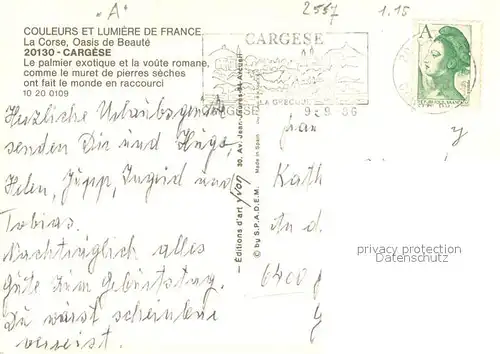 "A"
2557
1.15
COULEURS ET LUMIÈRE DE FRANCE
La Corse, Oasis de Beauté
20130 - CARGÈSE
Le palmier exotique et la voûte romane,
comme le muret de pierres sèches
ont fait le monde en raccourci
10 20 0109
CARGESE
LA GRECQUE
9-9 86
A
Herzliche Urlaubsgrüße
senden Dir und Hugo,
Helen, Jupp, Ingrid und
Tobias.
Nachträglich alles
Gute zum Geburtstag.
Du warst scheinbar
verreist.
—Editions d'art yvon 30, Av. Jean-Jaurès-94-Arcueil
© by S.P.A.D.E.M. Made in Spain
Kath
An d
6400
privacy protection
Datenschutz